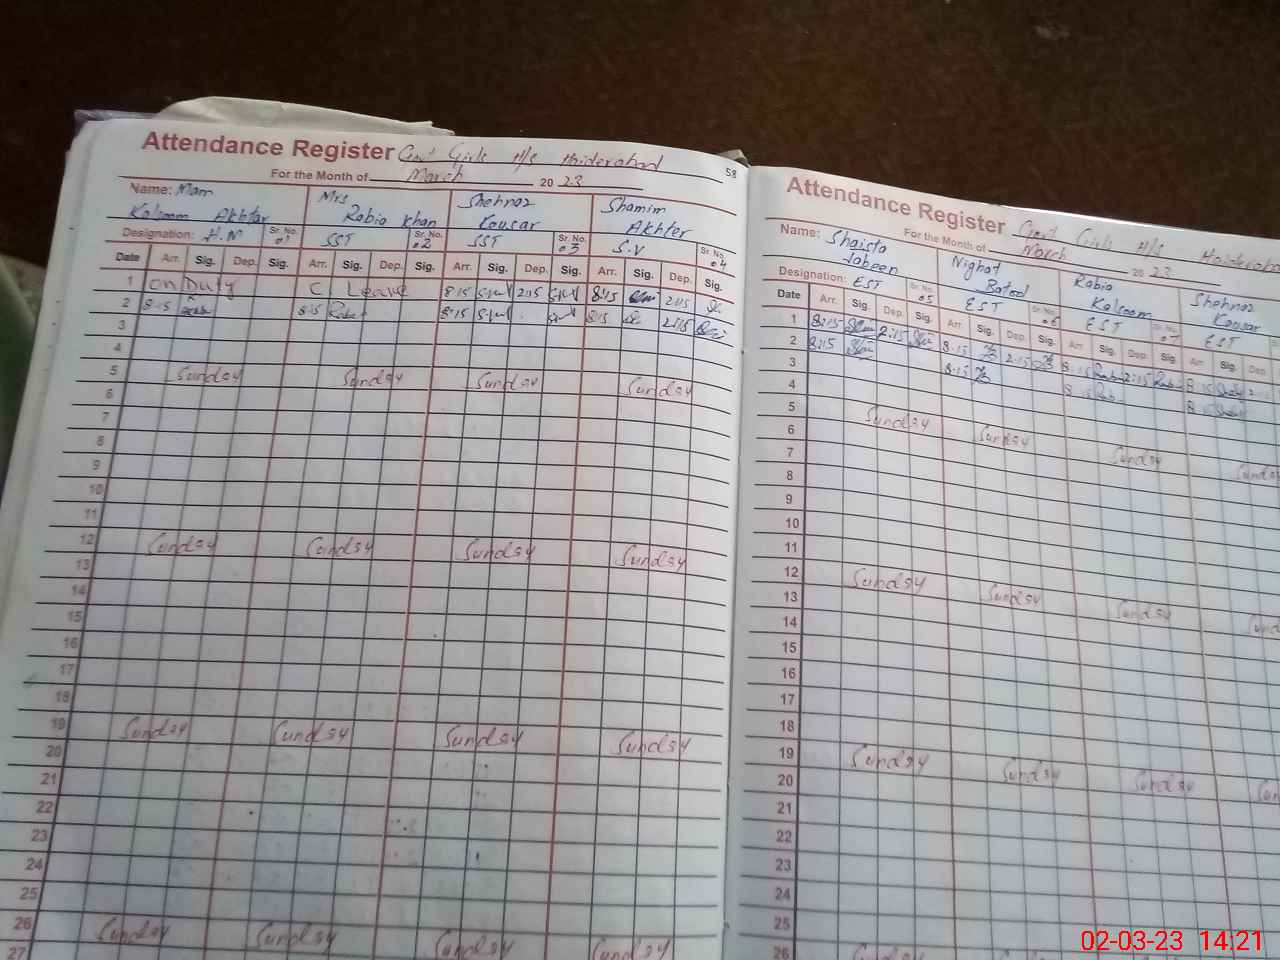 Attendance Register Govt Girls H/S Haiderabad
For the Month of March 2023
58
Name: Mam Kalsoom Akhtar
Mrs Rabia Khan
Shehnaz Kousar
Shamim Akhter
Designation: H.M Sr. No. 01
SST Sr. No. 02
SST Sr. No. 03
S.V Sr. No. 04
Date Arr. Sig. Dep. Sig. Arr. Sig. Dep. Sig. Arr. Sig. Dep. Sig. Arr. Sig. Dep. Sig.
1 On Duty C Leave 8:15 2:15 8:15 2:15
2 8:15 8:15 8:15 8:15 2:15
3
4
5 Sunday Sunday Sunday Sunday
6
7
8
9
10
11
12 Sunday Sunday Sunday Sunday
13
14
15
16
17
18
19 Sunday Sunday Sunday Sunday
20
21
22
23
24
25
26 Sunday Sunday Sunday Sunday
27
Attendance Register Govt Girls H/S Haiderabad
For the Month of March 2023
Name: Shaista Jabeen
Nighat
Rabia Kalsoom
Shehnaz Kousar
Designation: EST Sr. No. 05
EST Sr. No. 06
EST Sr. No. 07
EST
Date Arr. Sig. Dep. Sig. Arr. Sig. Dep. Sig. Arr. Sig. Dep. Sig. Arr. Sig. Dep
1 8:15 2:15 8:15 2:15 8:15 2:15 8:15
2 8:15 8:15 8:15 8:15
3
4
5 Sunday Sunday Sunday Sunday
6
7
8
9
10
11
12 Sunday Sunday Sunday
13
14
15
16
17
18
19 Sunday Sunday Sunday
20
21
22
23
24
25
26
02-03-23 14:21